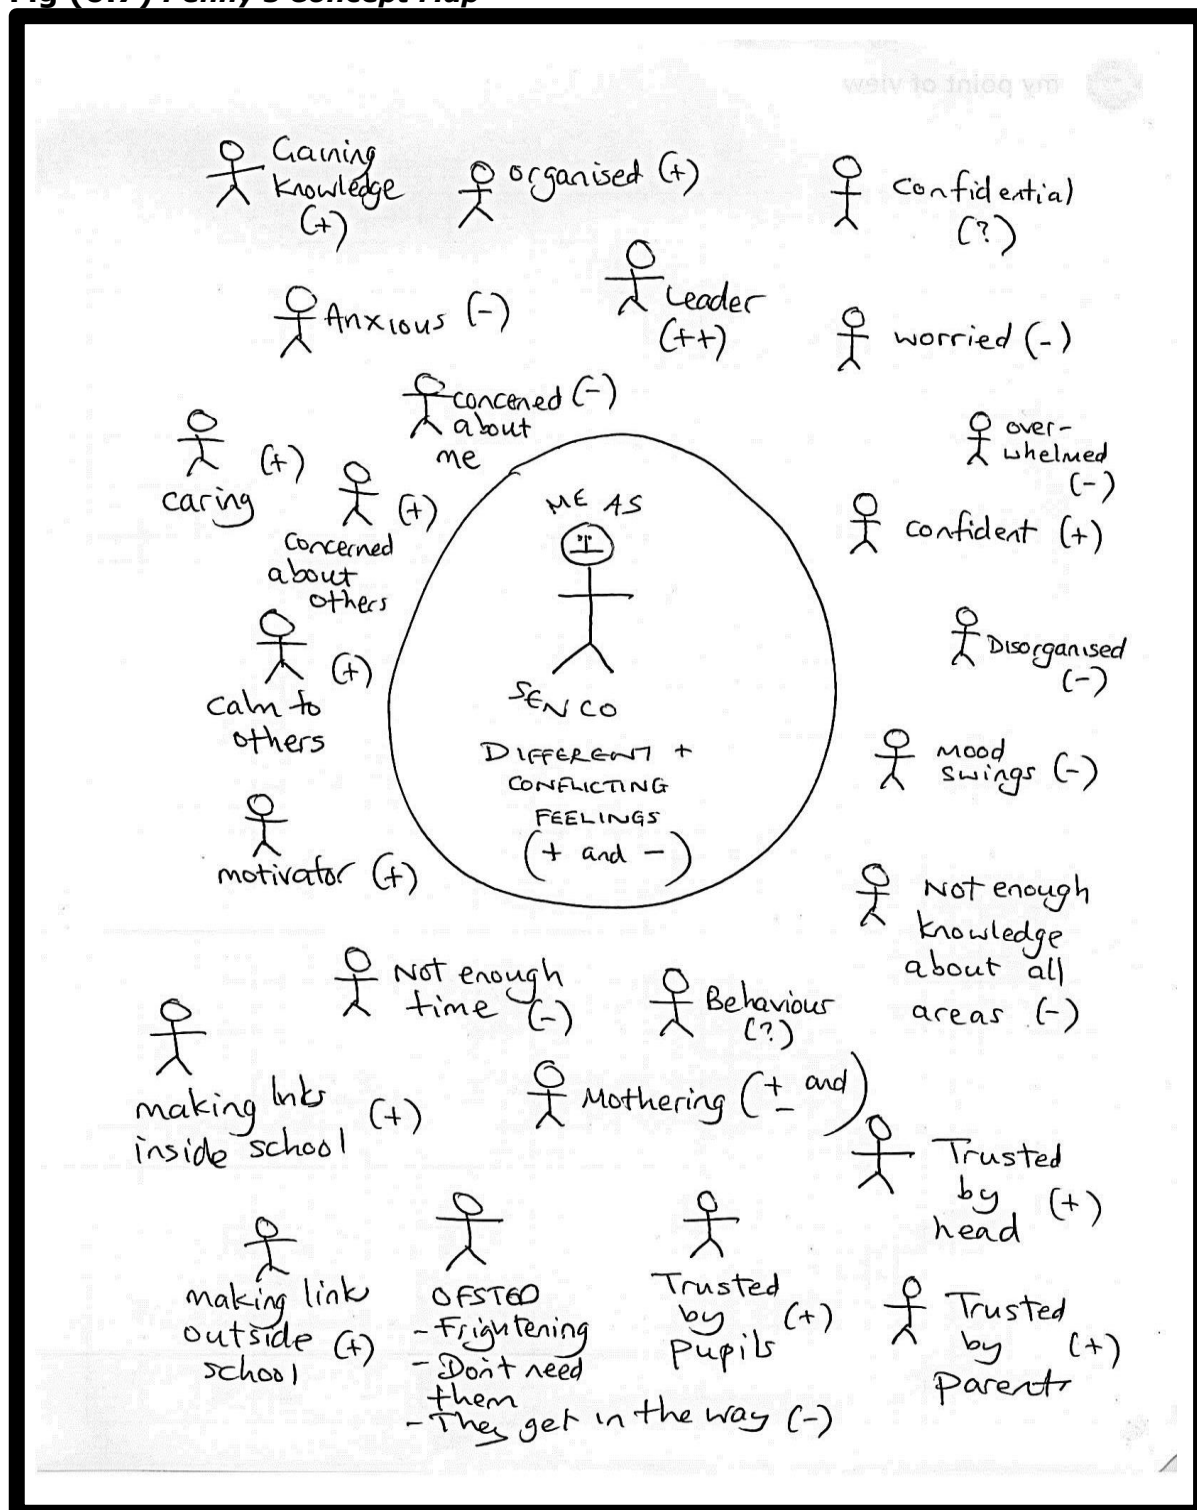 Fig (6.7) Penny's Concept Map
my point of view
Gaining
Knowledge
(+)
organised (+)
Confidential
(?)
Leader
(++)
Anxious (-)
worried (-)
concened (-)
about
me
over-
whelmed
(-)
caring (+)
(+)
Concerned
about
others
confident (+)
ME AS
SENCO
DIFFERENT +
CONFLICTING
FEELINGS
(+ and -)
Disorganised
(-)
(+)
calm to
others
mood
swings (-)
motivator (+)
Not enough
knowledge
about all
areas (-)
Not enough
time (-)
Behavious
(?)
making lnks (+)
inside school
Mothering (+ and -)
Trusted
by (+)
head
making link
outside (+)
school
OFSTED
- Frightening
- Don't need
them
- They get in the way (-)
Trusted
by (+)
pupils
Trusted
by (+)
parents